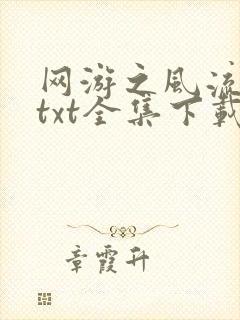 网游之风流
txt全集下载
章霞升